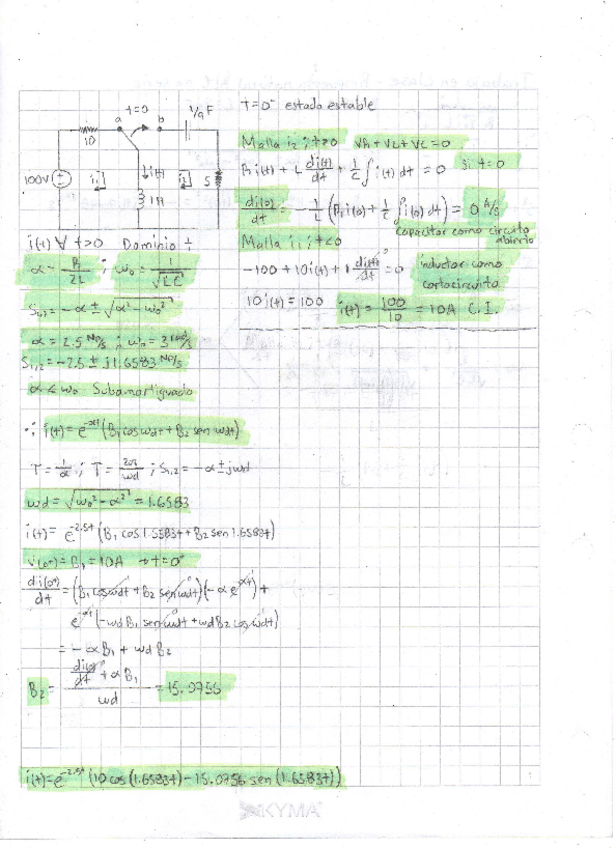 t=0
a
b
1/9 F
10
100V
i1
i(t)
i2
5
1H
T=0⁻ estado estable
Malla i2 ; t>0 VR+VL+VC=0
Ri(t) + L di(t)/dt + 1/C ∫ i(t) dt = 0 Si t=0
di(0)/dt = -1/L (Ri(0) + 1/C ∫ i(0) dt) = 0 A/s
capacitor como circuito abierto
Malla i1 ; t<0
-100 + 10i(t) + 1 di(t)/dt = 0
inductor como cortocircuito
10i(t) = 100 i(t) = 100/10 = 10A C.I.
i(t) ∀ t>0 Dominio t
α = R/2L ; ω₀ = 1/√LC
S1,2 = -α ± √α² - ω₀²
α = 2.5 Np/s ; ω₀ = 3 rad/s
S1,2 = -2.5 ± j1.6583 Np/s
α < ω₀ Subamortiguado
∴ i(t) = e^-αt (B1 cos ωdt + B2 sen ωdt)
T = 1/α ; T = 2π/ωd ; S1,2 = -α ± jωd
ωd = √ω₀² - α² = 1.6583
i(t) = e^-2.5t (B1 cos 1.5583t + B2 sen 1.6583t)
i(0+) = B1 = 10A → t=0⁺
di(0+)/dt = (B1 cos ωdt + B2 sen ωdt)(-α e^-αt) +
e^-αt (-ωd B1 sen ωdt + ωd B2 cos ωdt)
= -αB1 + ωd B2
B2 = (di(0)/dt + αB1)/ωd = 15.0756
i(t) = e^-2.5t (10 cos (1.6583t) - 15.0756 sen (1.6583t))
KYMA